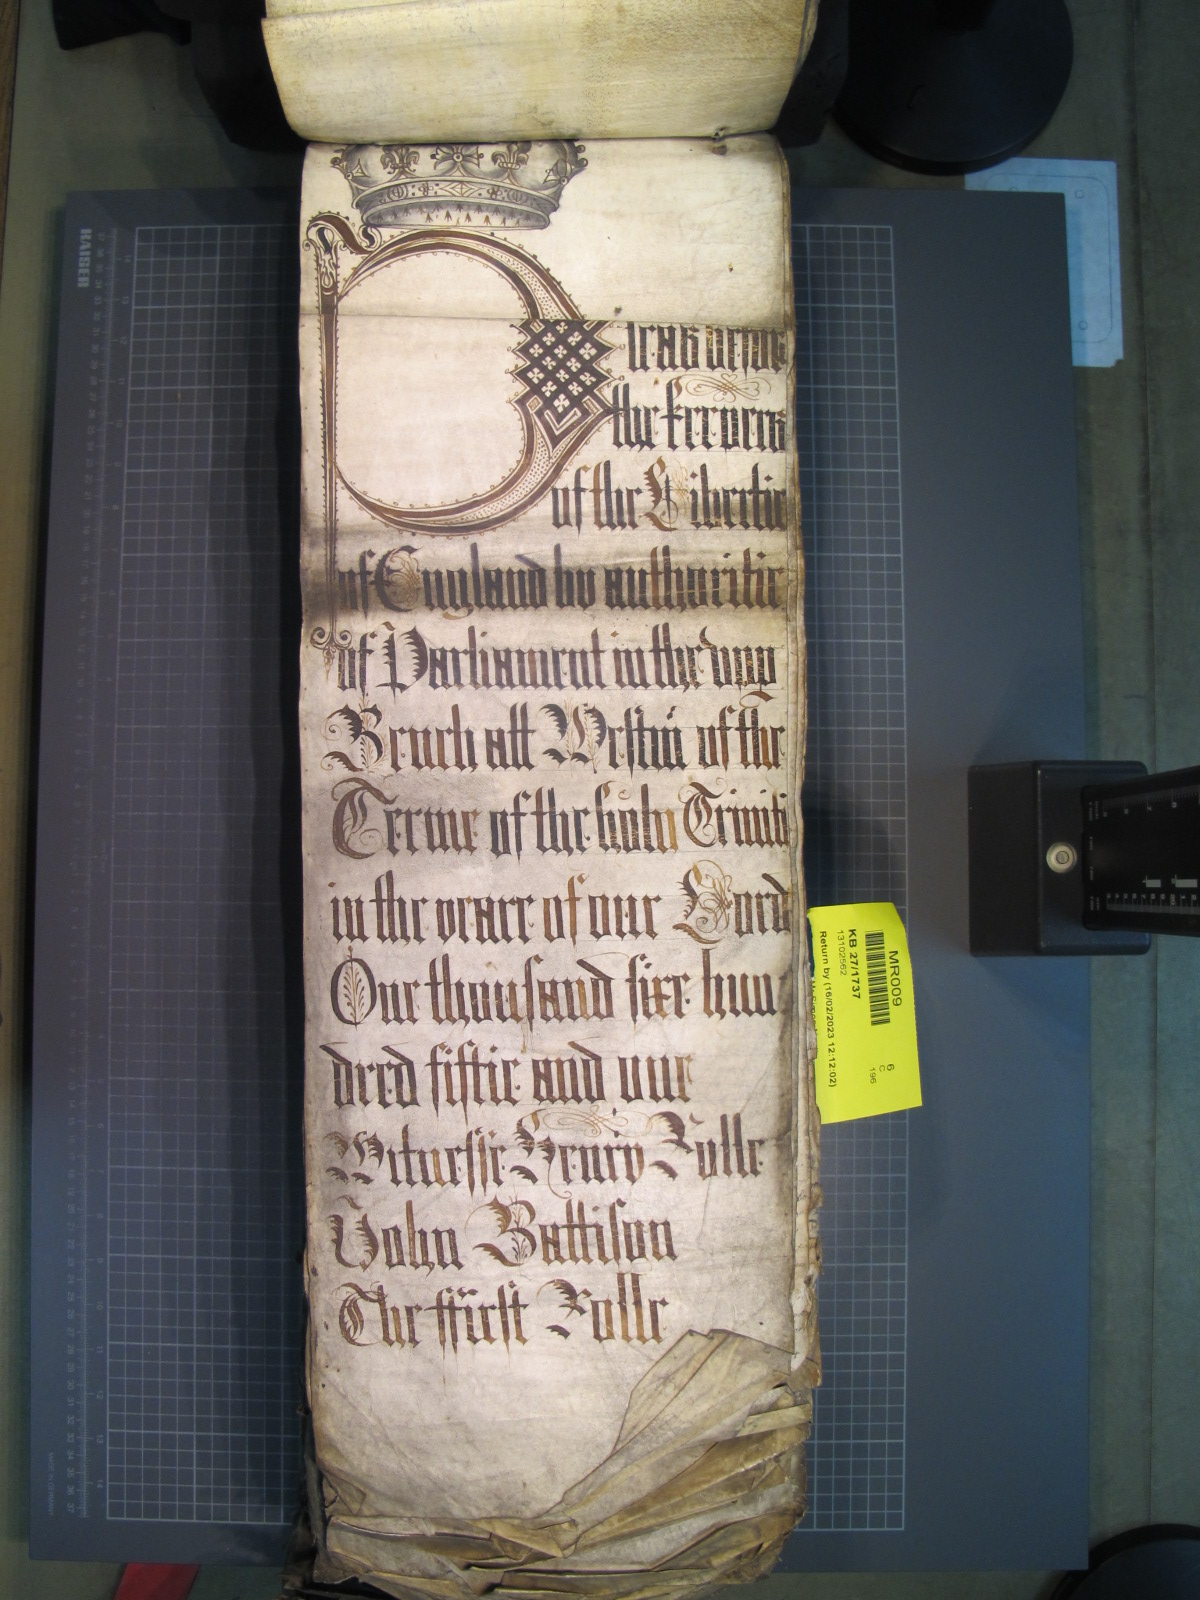 Pleas before
the Keepers
of the Libertie
of England by authoritie
of Parliament in the upp
Bench att Westm̄ of the
Terme of the holy Triniti
in the yeare of our Lord
One thousand sixe hun
dred fiftie and one
Witnesse Henry Rolle
John Battison
The ffirst Rolle
MR009
KB 27/1737
13102562
Return by (16/02/2023 12:12:02)
6
C
196
KAISER
MADE IN GERMANY